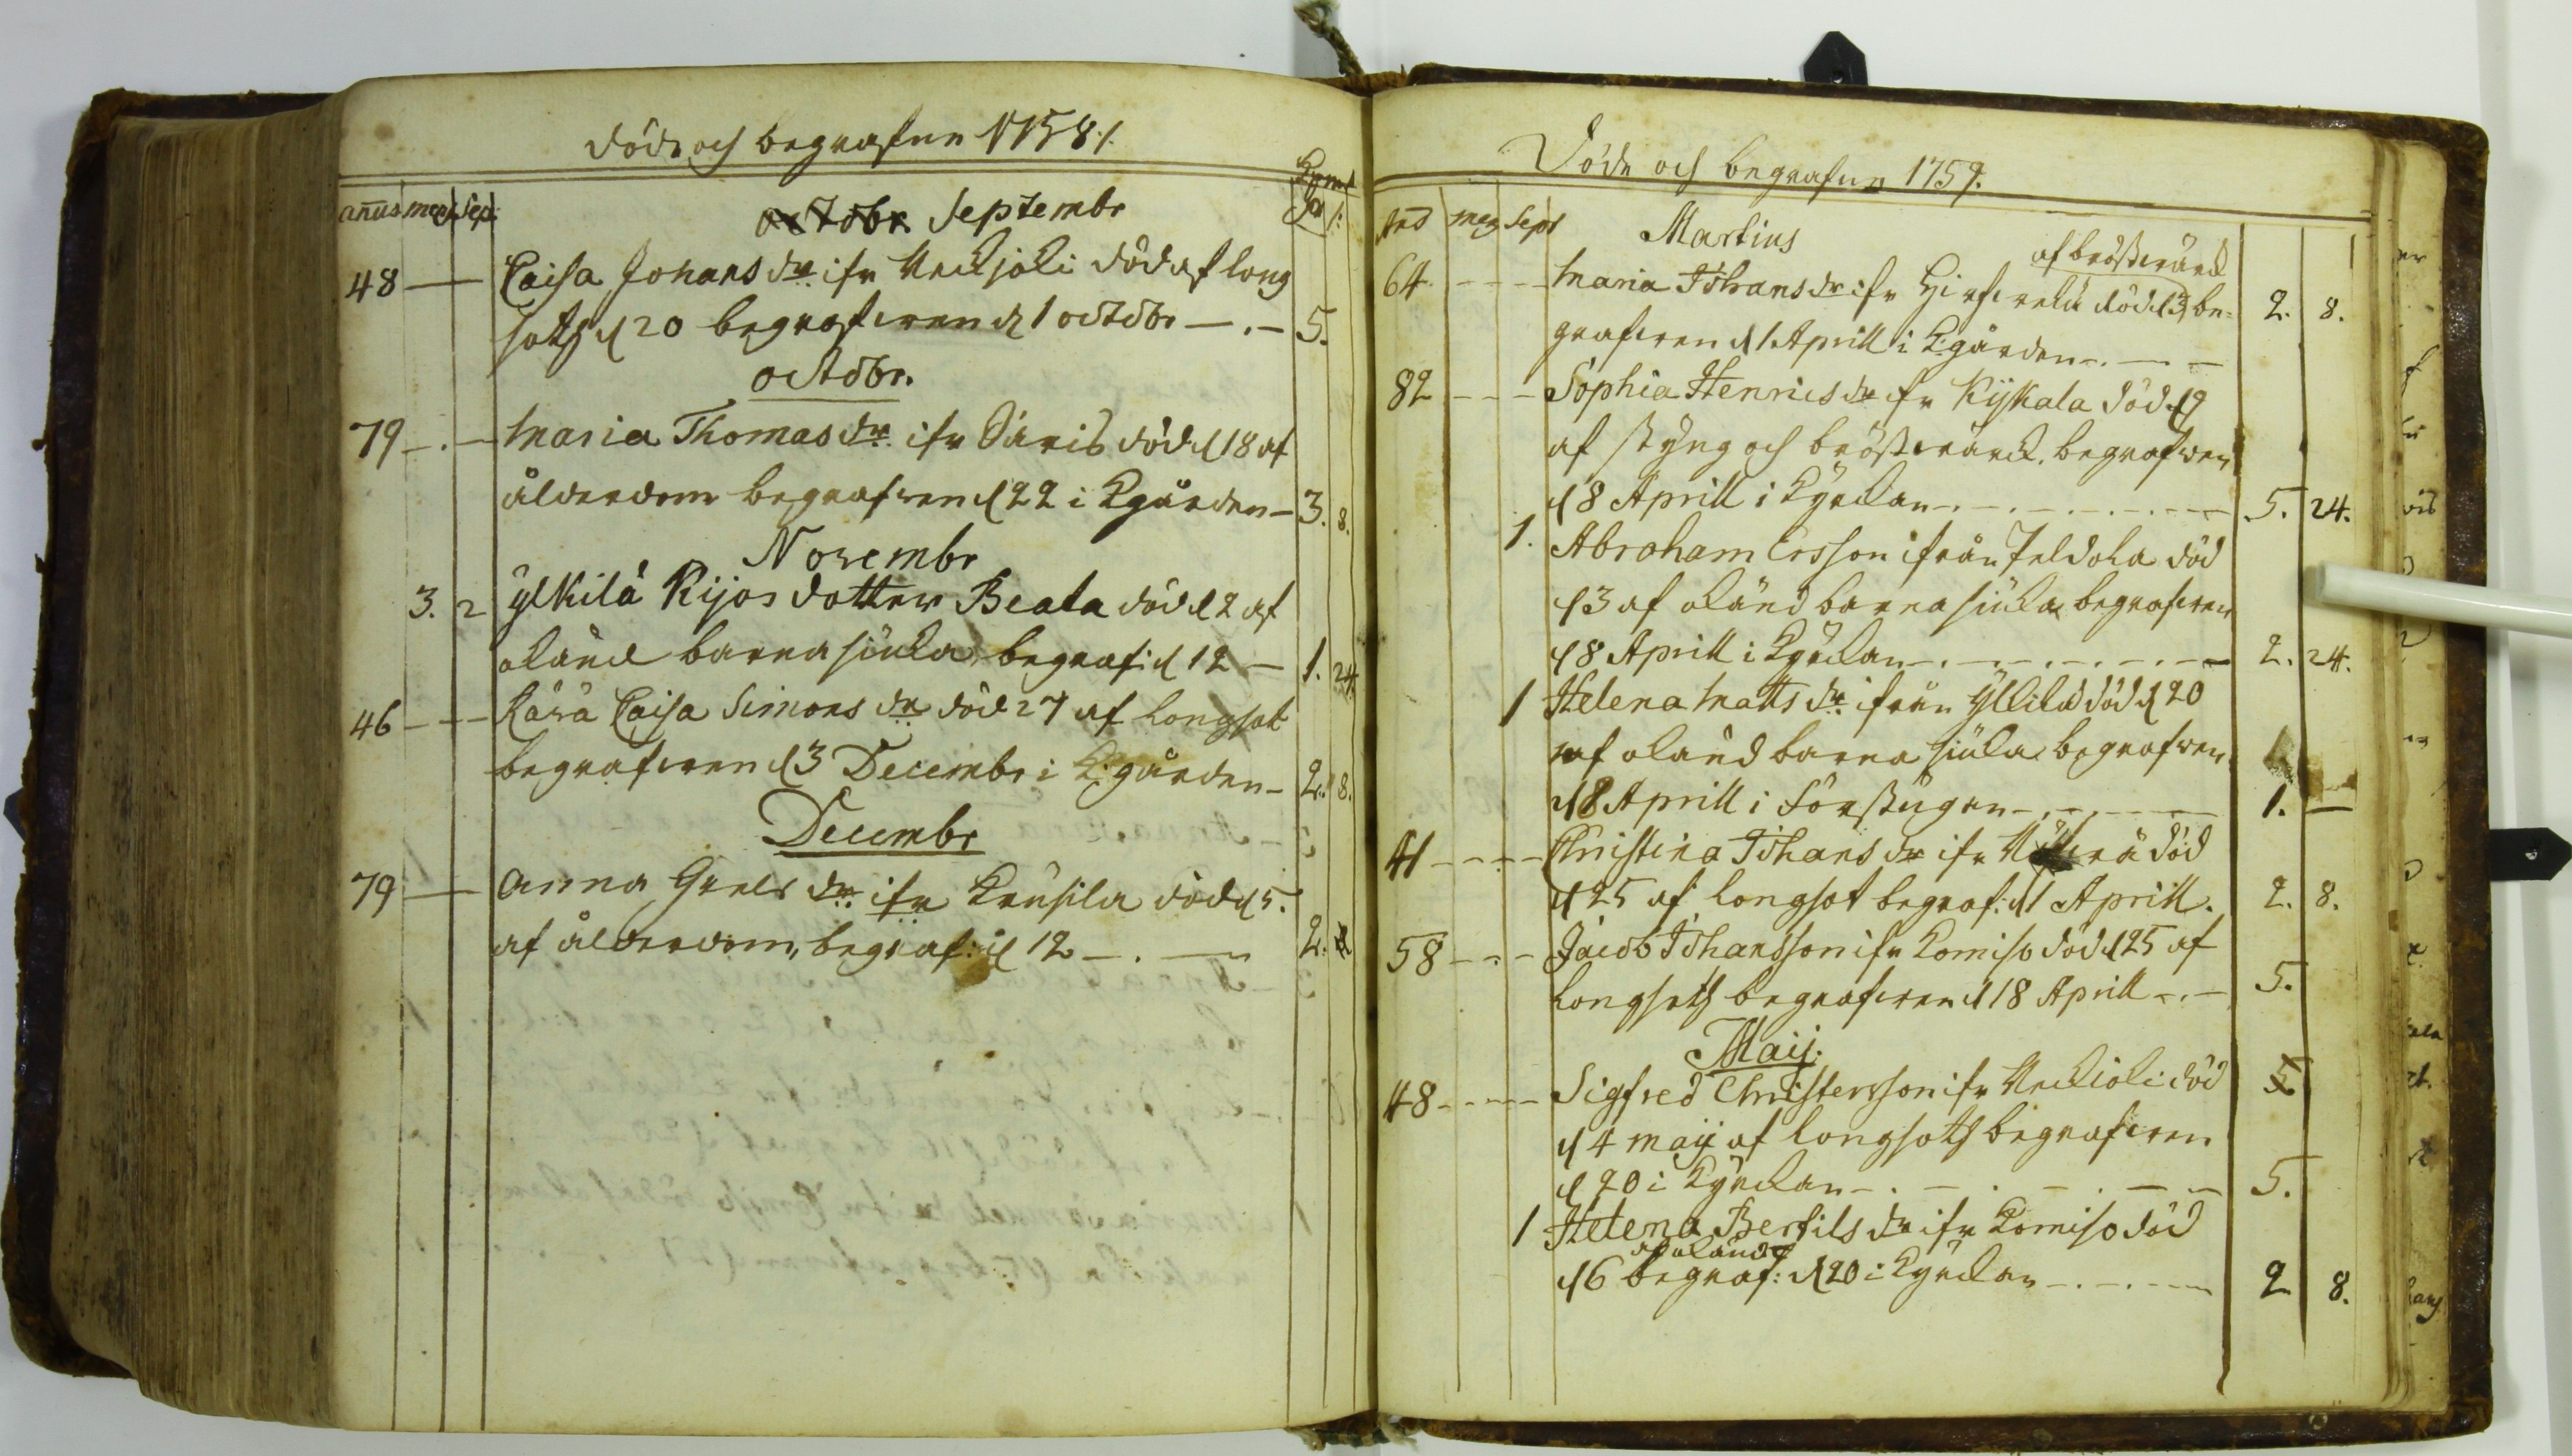 Döde och begrafne 1758/.
Kpmt
añus mens sep. Septembr
48 — Caisa Johans dr. ifr Neckjoki död af lung
sotg d 20 begrafwen d 1 octobr — . — 5.
octobr.
79 — . — Maria Thomas dr. ifr Säris död d 18 af
ålderdom begrafwen d 22 i Kgården — 3. 8.
Novembr
3. 2 ylkilä Rijos dotter Beata död d 2 af
okänd barnasiuka, begraf: d 12 — 1. 24
46 — — Rävä Caisa Simons dr död 27 af lungsot
begrafwen d 3 Decembr i K:gården — 2. 8.
Decembr
79 — Anna Grels dr. ifr Krusila död d 5.
af ålderdom, begraf: d 12 — . — 2.
Döde och begrafne 1759.
And men Sept Martius
af bröstwärck
64. — — — Maria Johans dr ifr Hirfwelä död d 3, be-
grafwen d 1 Aprill i K:gården — . — — 2. 8.
82 — — — Sophia Henrics dr ifr Kijkala död d 9
af styng och bröstwärck, begrafwen
d 8 Aprill i Kyrckan — . — . — . — 5. 24.
1. Abraham Ersson ifrån Jeldola död
d 3 af okänd barnasiuka begrafwen
d 8 Aprill i Kyrckan — . — . — . — . — 2. 24.
1 Helena Matts dr. ifrån Yllilä död d 20
af okänd barna siuka begrafwen
d 8 Aprill i Förstugen — . — . — 1. —
41 — — — Christina Johans dr ifr död
d 25 af lungsot begraf: d 1 Aprill. 2. 8.
58 — . — Jacob Johansson ifr Komiso död d 25 af
lungsotg begrafwen d 18 Aprill — . — 5.
Maij.
48 — — — Sigfred Christersson ifr Neckioki död 5
d 4 maij af lungsotg begrafwen
d 20 i Kyrckan — . — . — . — — 5.
1 Helena Bertils dr ifr Komiso död
af okänd
d 6 begraf: d 20 i Kyrckan — . — . — 2 8.